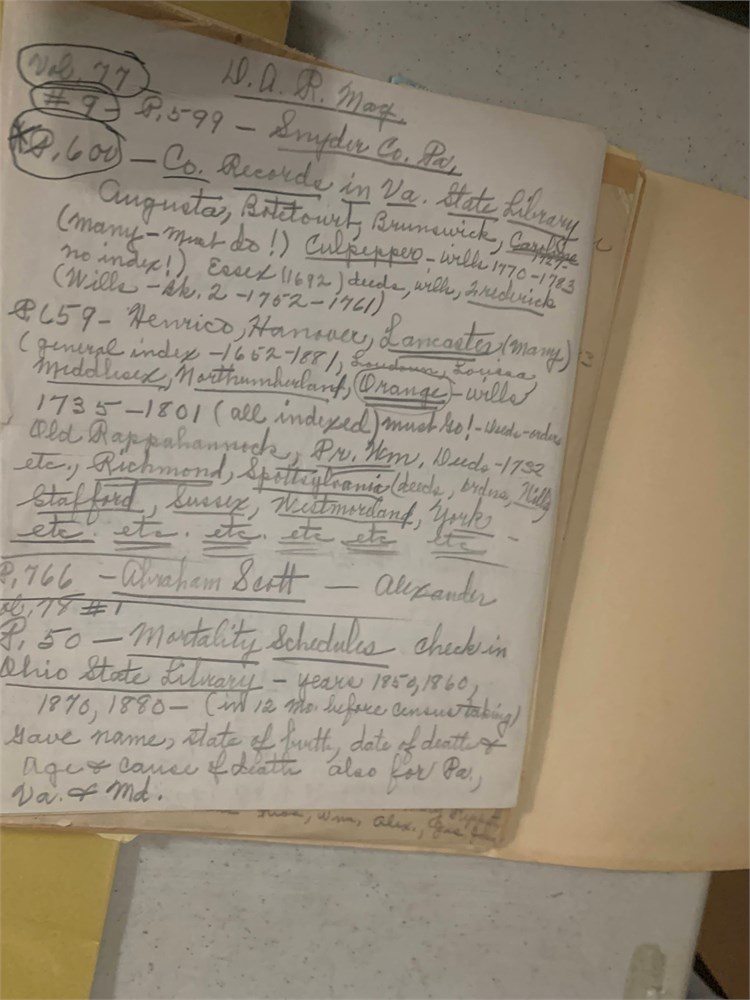 Vol. 77 D.A.R. Mag.
#9 - P. 599 - Snyder Co. Pa,
*P. 600 - Co. Records in Va. State Library
Augusta, Botetourt, Brunswick, Caroline
(many - must do!) Culpepper - wills 1770-1783
no index!) Essex (1692) deeds, wills, Frederick
(Wills - Bk. 2 - 1752-1761)
P. 659 - Henrico, Hanover, Lancaster (many)
(general index - 1652-1881, Loudoun, Louisa
Middlesex, Northumberland, Orange - wills
1735-1801 (all indexed) must go! - deeds - orders
Old Rappahannock, Pr. Wm. Deeds - 1732
etc., Richmond, Spottsylvania (deeds, orders, Wills)
Stafford, Sussex, Westmorland, York -
etc. etc. etc. etc etc etc
P. 766 - Abraham Scott - Alexander
Vol. 78 #1
P. 50 - Mortality Schedules check in
Ohio State Library - years 1850, 1860,
1870, 1880 - (in 12 mo. before census taking)
Gave name, state of birth, date of death &
Age & cause of death also for Pa,
Va. & Md.
Wm, Alex.,